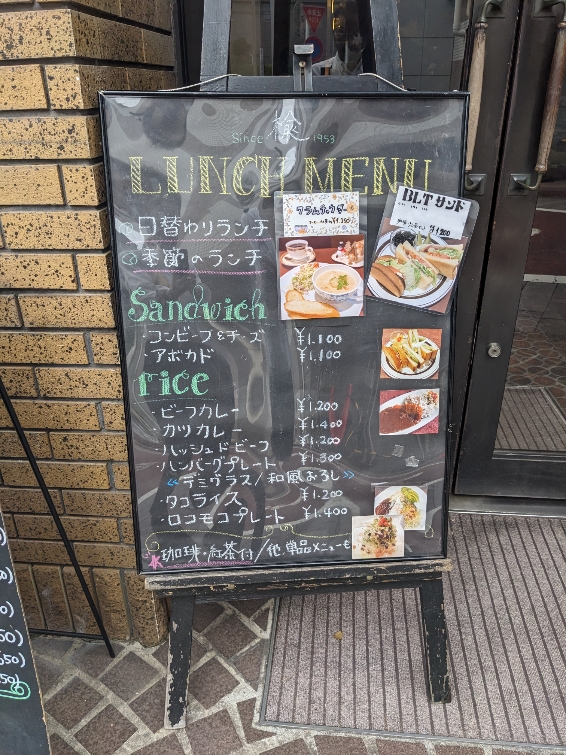 Since 1953
LUNCH MENU
日替わりランチ
季節のランチ
クラムチャウダー
BLTサンド
¥1,200
Sandwich
・コンビーフ&チーズ ¥1.100
・アボカド ¥1.100
rice
・ビーフカレー ¥1.200
・カツカレー ¥1.400
・ハッシュドビーフ ¥1.200
・ハンバーグプレート ¥1.300
《デミグラス/和風おろし》
・タコライス ¥1.200
・ロコモコプレート ¥1.400
★珈琲・紅茶付/他、単品メニューも